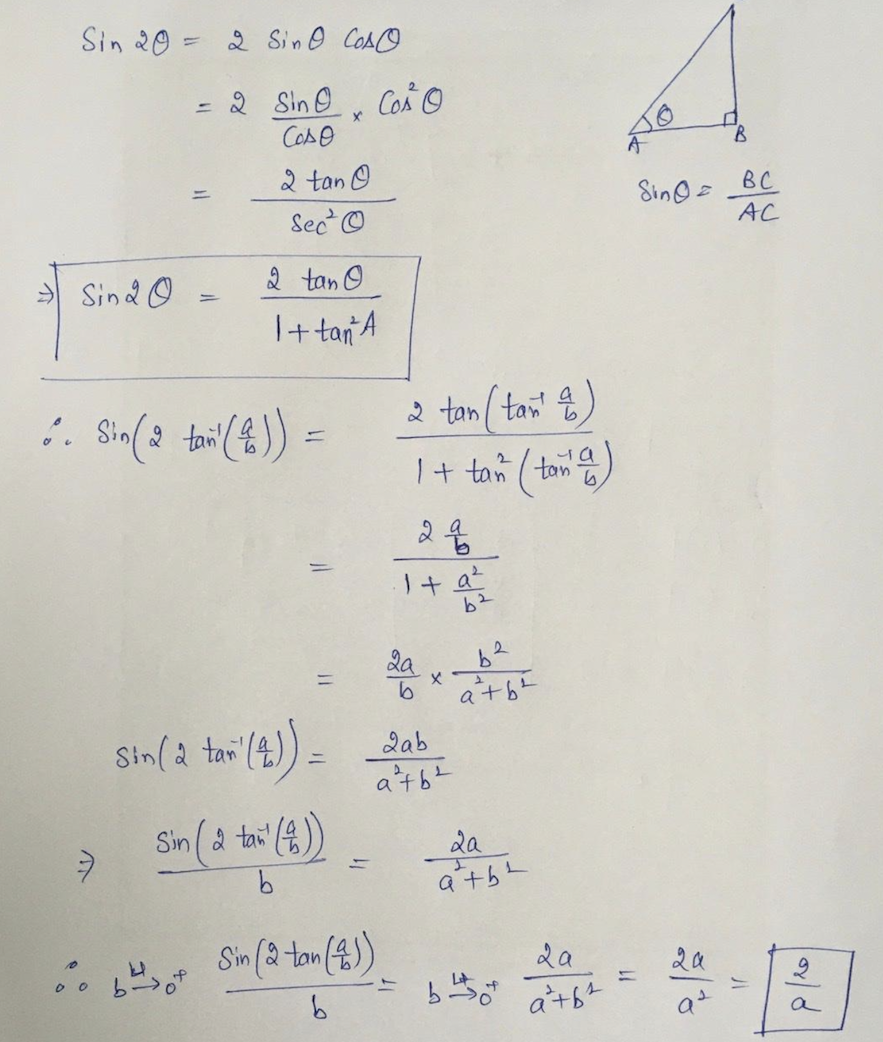 Sin 2θ = 2 Sinθ Cosθ
= 2 Sinθ/Cosθ × Cos²θ
= 2 tanθ / Sec²θ
⇒ Sin2θ = 2 tanθ / 1 + tan²A
θ
A B
Sinθ = BC/AC
∴ Sin(2 tan⁻¹(a/b)) = 2 tan(tan⁻¹ a/b) / 1 + tan²(tan⁻¹ a/b)
= 2 a/b / 1 + a²/b²
= 2a/b × b²/a²+b²
Sin(2 tan⁻¹(a/b)) = 2ab / a²+b²
⇒ Sin(2 tan⁻¹(a/b)) / b = 2a / a²+b²
∴ Lt b→0⁺ Sin(2 tan(a/b)) / b = Lt b→0⁺ 2a / a²+b² = 2a/a² = 2/a